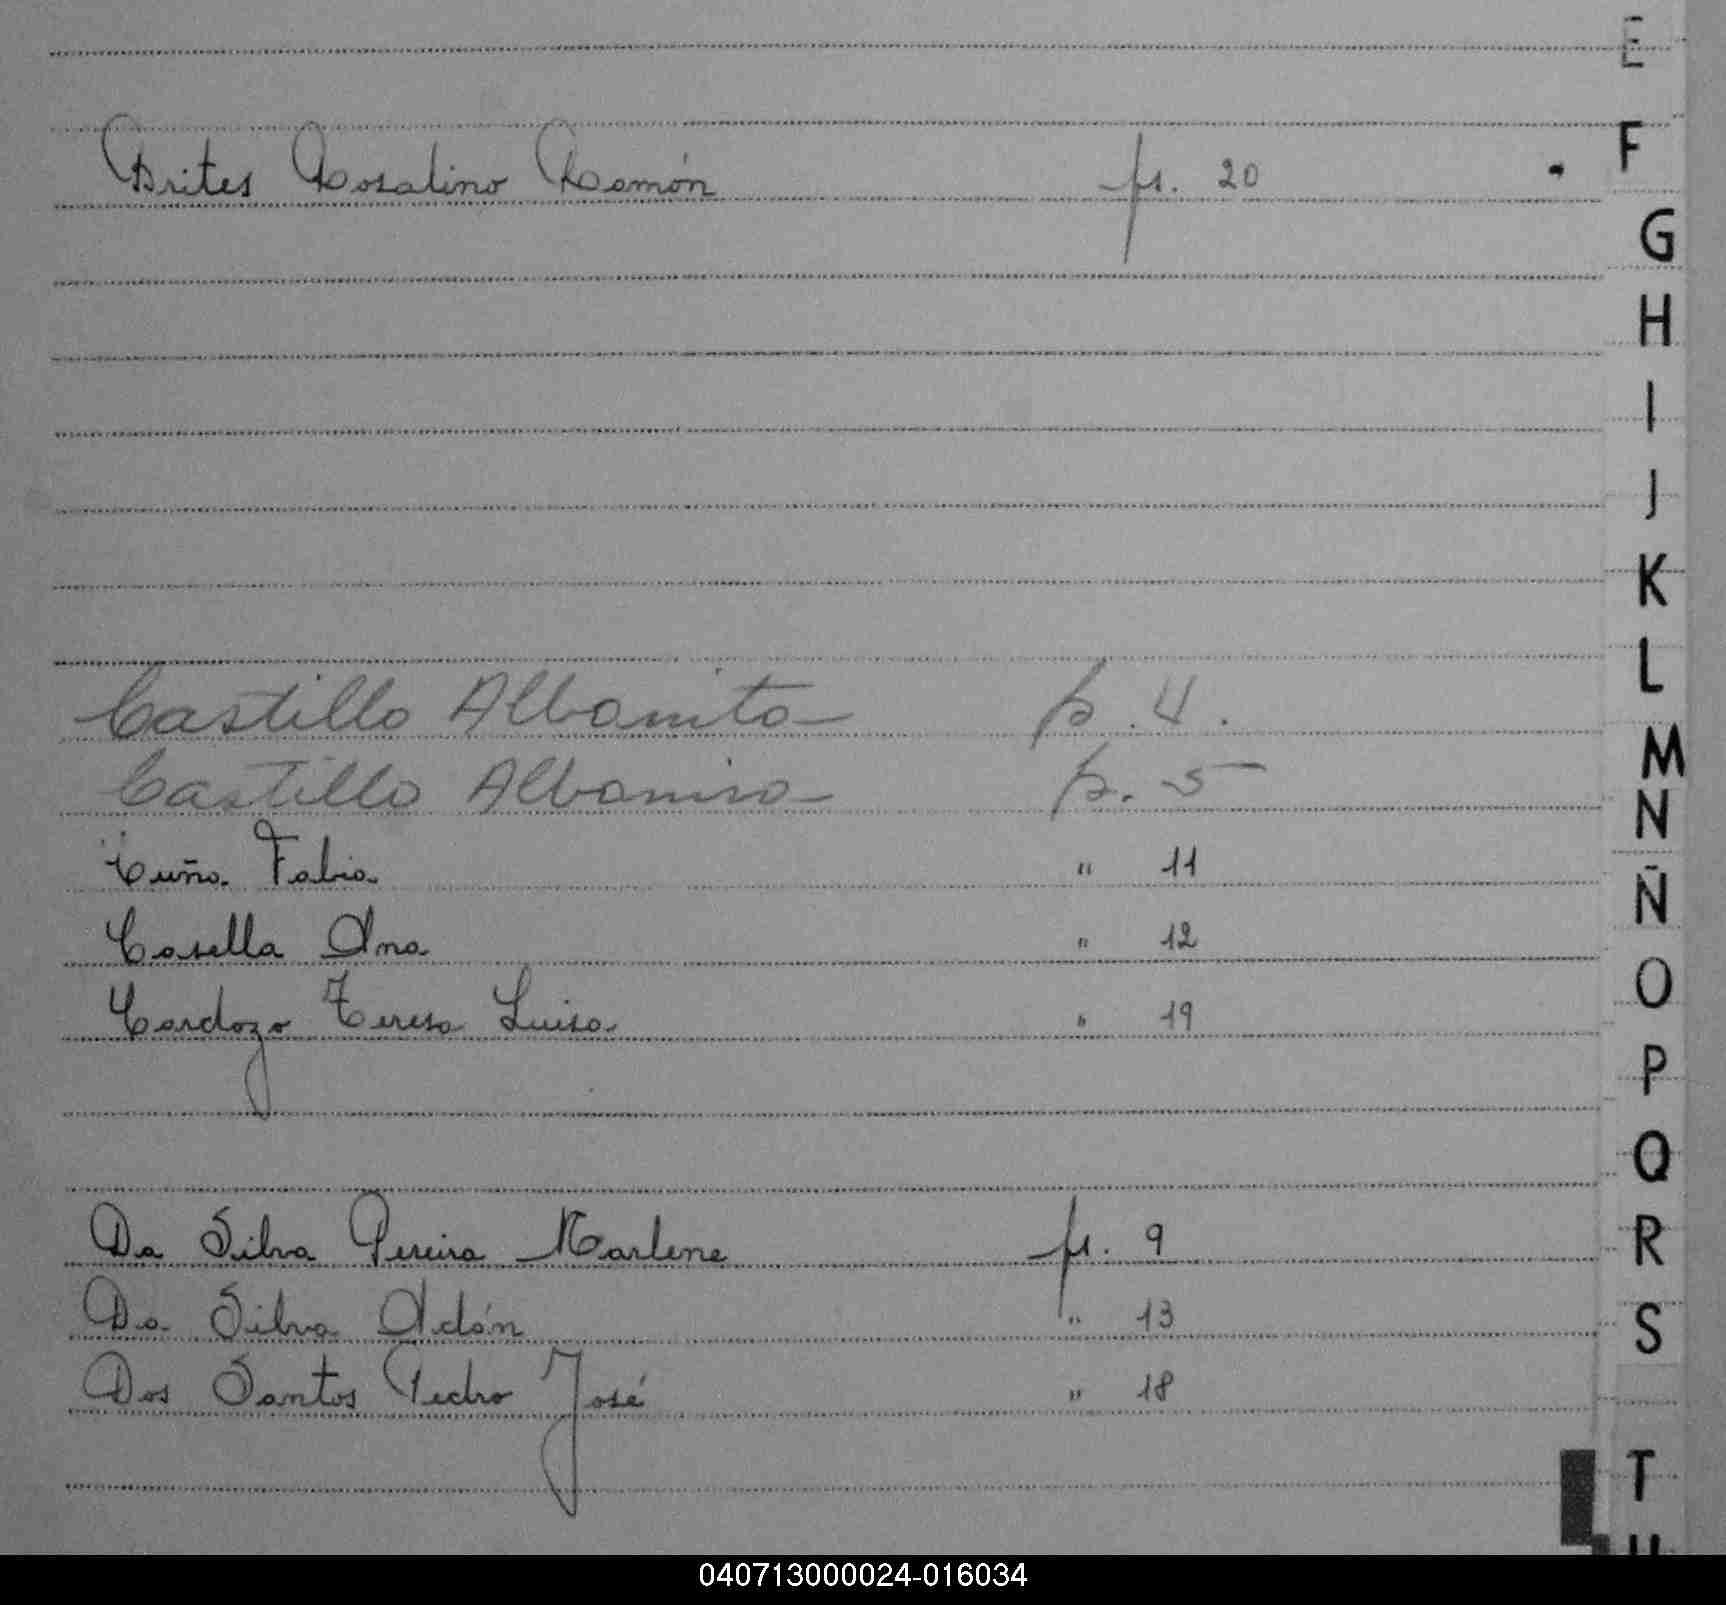 E
Brites Rosalino Ramón fs. 20
F
G
H
I
J
K
L
Castillo Albanita p. 4.
M
Castillo Albanisa p. 5
N
Cuña Fabia " 11
Ñ
Casella Ana " 12
O
Cardozo Teresa Luisa " 19
P
Q
Da Silva Pereira Marlene fs. 9
R
Da Silva Adán " 13
S
Dos Santos Pedro José " 18
T
U
040713000024-016034